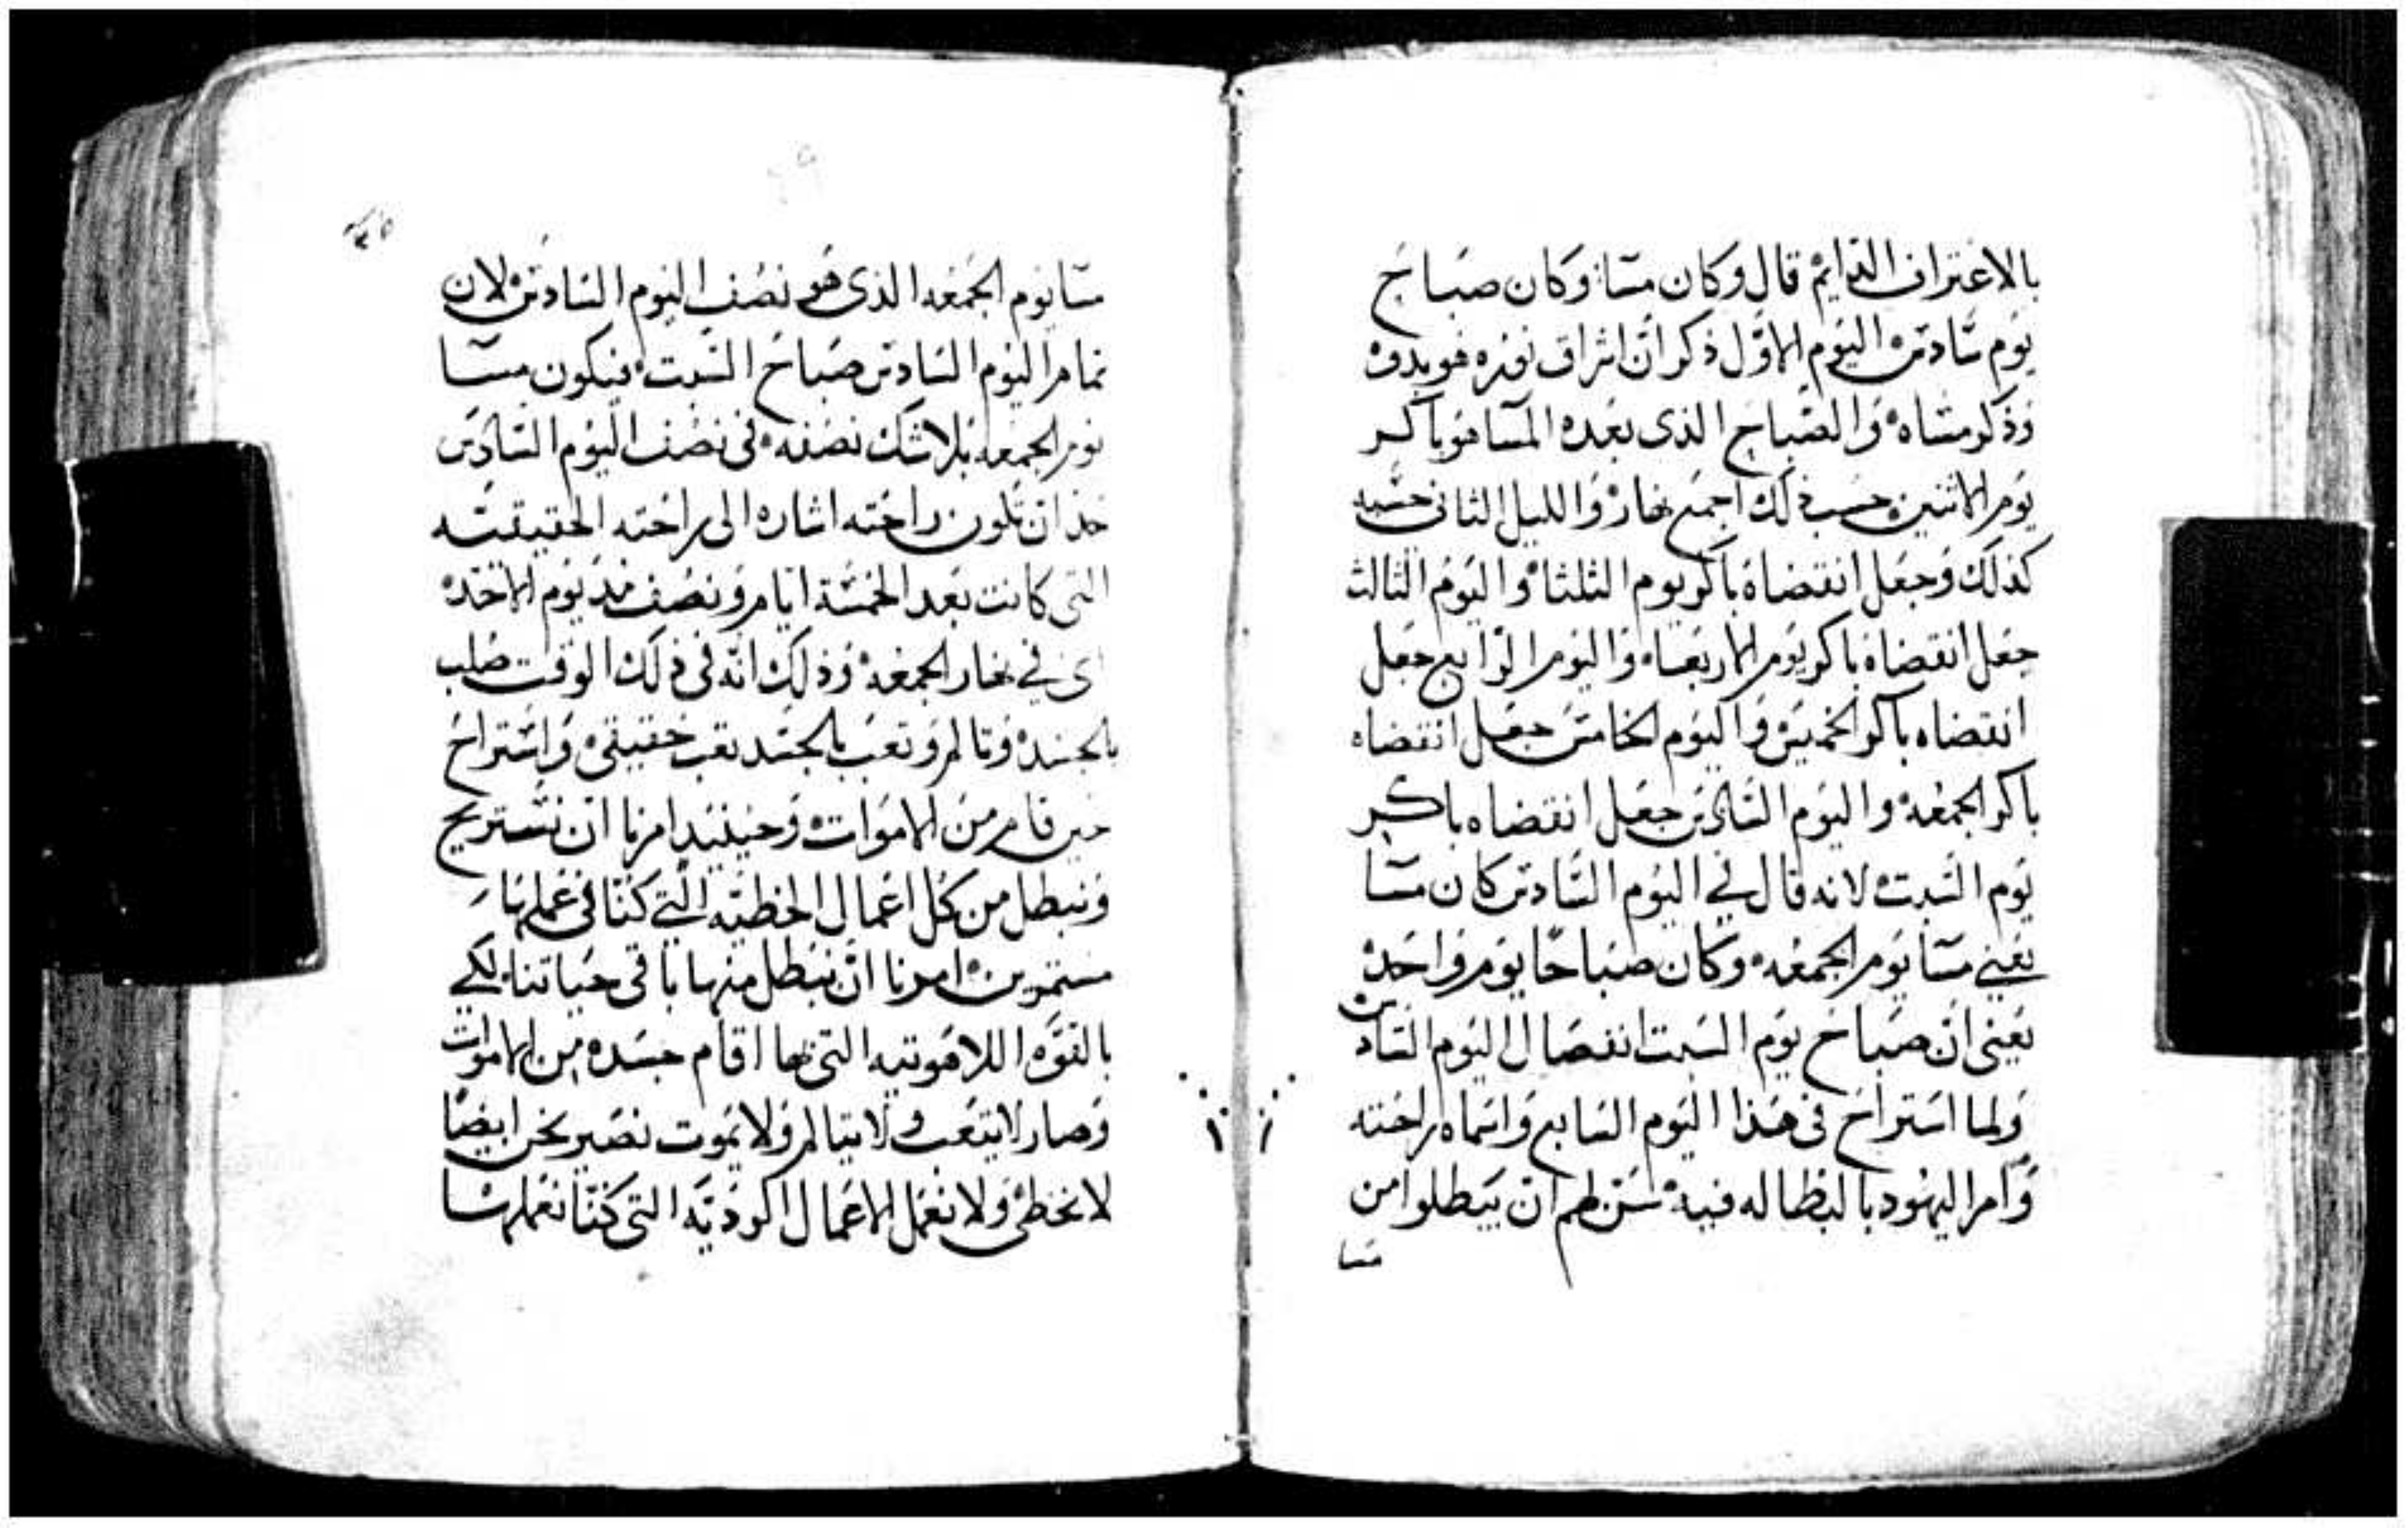 بالاعتراف الدايم قال وكان مسا وكان صباح
يوم سادس اليوم الاول ذكر ان اشراق نوره هو بدوه
وذكر مساه والصباح الذى بعده المسا هو باكر
يوم الاثنين حسب ذلك اجمع نهار والليل الثانى حسبه
كذلك وجعل انقضاه باكر يوم الثلثا واليوم الثالث
جعل انقضاه باكر يوم الاربعاه واليوم الرابع جعل
انقضاه باكر الخميس واليوم الخامس جعل انقضاه
باكر الجمعه واليوم السادس جعل انقضاه باكر
يوم السبت لانه قال في اليوم السادس كان مسا
يعني مسا يوم الجمعه وكان صباحا يوم واحد
يعنى ان صباح يوم السبت انفصال اليوم السادس
ولما استراح فى هذا اليوم السابع واسماه راحته
وامر اليهود بالبطاله فيه سن لهم ان يبطلوا من
مسا
مسا يوم الجمعه الذى هو نصف اليوم السادس لان
تمام اليوم السادس صباح السبت فيكون مسا
يوم الجمعه بلا شك نصفه فى نصف اليوم السادس
حد ان تكون راحته اشاره الى راحته الحقيقيه
التى كانت بعد الخمسة ايام ونصف مند يوم الاحد
اى في نهار الجمعه وذلك انه فى ذلك الوقت صلب
بالجسد وتالم وتعب بالجسد تعب حقيقى واستراح
حين قام من الاموات وحينيد امرنا ان نستريح
ونبطل من كل اعمال الخطيه التي كنا فى عملها
مستمرين امرنا ان نبطل منها باقى حياتنا لكي
بالقوه اللاهوتيه التى بها اقام جسده من الاموات
وصار لا يتعب ولا يتالم ولا يموت نصير نحن ايضا
لا نخطى ولا نعمل الاعمال الرديه التى كنا نعملها